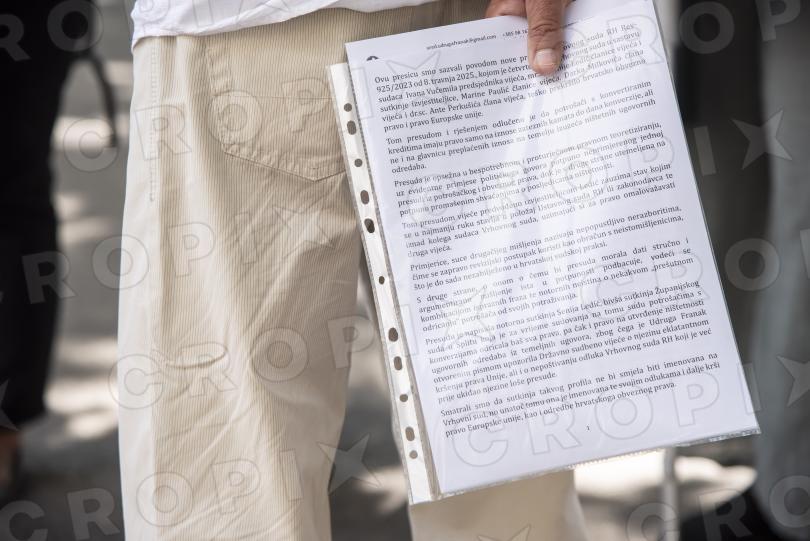 ured.udrugafranak@gmail.com +385 98 16
Ovu presicu smo sazvali povodom nove pr ovnog suda RH Rev-
925/2023 od 8. travnja 2025., kojom je četvrto
sudaca Ivana Vučemila predsjednika vijeća,
sutkinje izvjestiteljice, Marine Paulić članice vijeća, Darka Milkovića člana
vijeća i dr.sc. Ante Perkušića člana vijeća, teško prekršio hrvatsko obvezno
pravo i pravo Europske unije.
Tom presudom i rješenjem odlučeno je da potrošači s konvertiranim
kreditima imaju pravo samo na iznose zateznih kamata do dana konverzije, ali
ne i na glavnicu preplaćenih iznosa na temelju izuzeća ništetnih ugovornih
odredaba.
Presuda je opsežna u bespotrebnom i proturječnom pravnom teoretiziranju,
uz evidentne primjese političkog govora potpuno neprimjerenog jednoj
presudi iz potrošačkog i obveznog prava, dok je s druge strane utemeljena na
potpuno promašenim shvaćanjima o posljedicama ništetnosti.
Tom presudom vijeće predvođeno izvjestiteljicom Ledić zauzima stav kojim
se u najmanju ruku stavlja u položaj Ustavnog suda RH ili zakonodavca te
iznad kolega sudaca Vrhovnog suda, uzimajući si za pravo omalovažavati
druga vijeća.
Primjerice, suce drugačijeg mišljenja nazivaju nepopustljivo nerazboritima,
čime se zapravo revizijski postupak koristi kao obračun s neistomišljenicima,
što je do sada nezabilježeno u hrvatskoj sudskoj praksi.
S druge strane, u onom o čemu bi presuda morala dati stručno i
argumentirano mišljenje ista u potpunosti podbacuje, vodeći se
kombinacijom ispraznih fraza te notornih neistina o nekakvom „prešutnom
odricanju" potrošača od svojih potraživanja.
Presudu je napisala notorna sutkinja Senija Ledić, bivša sutkinja Županijskog
suda u Splitu koja je za vrijeme sucovanja na tomu sudu potrošačima s
konverzijama uskraćivala baš sva prava, pa čak i pravo na utvrđenje ništetnosti
ugovornih odredaba iz temeljnih ugovora, zbog čega je Udruga Franak
otvorenim pismom upozorila Državno sudbeno vijeće o njezinu eklatantnom
kršenju prava Unije, ali i o nepoštivanju odluka Vrhovnog suda RH koji je već
prije ukidao njezine loše presude.
Smatrali smo da sutkinja takvog profila ne bi smjela biti imenovana na
Vrhovni sud, no unatoč tomu ona je imenovana te svojim odlukama i dalje krši
pravo Europske unije, kao i odredbe hrvatskoga obveznog prava.
1
CROPIX